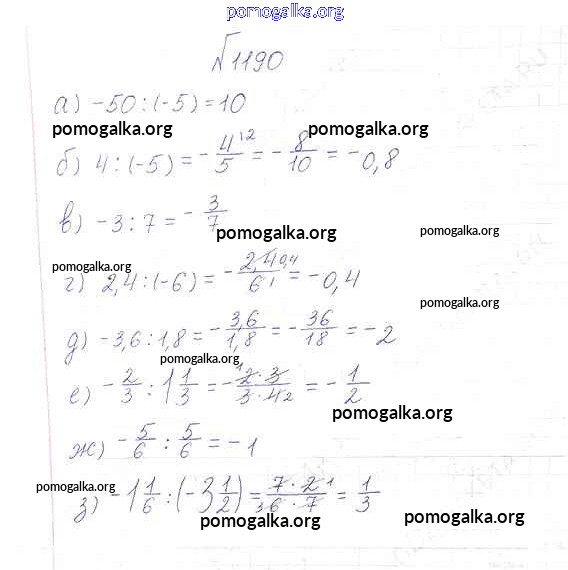 pomogalka.org
№1190
а) -50 : (-5) = 10
pomogalka.org pomogalka.org
б) 4 : (-5) = - 4/5 ^{1 2} = - 8/10 = -0,8
в) -3 : 7 = - 3/7
pomogalka.org pomogalka.org
pomogalka.org
г) 2,4 : (-6) = - 2,4 ^{0,4} / 6 ^{1} = -0,4
pomogalka.org
д) -3,6 : 1,8 = - 3,6/1,8 = - 36/18 = -2
pomogalka.org
е) - 2/3 : 1 1/3 = - ^{1} 2·3 / 3·4 _{2} = - 1/2
pomogalka.org
ж) - 5/6 : 5/6 = -1
pomogalka.org
з) -1 1/6 : (-3 1/2) = 7·2 ^{1} / _{3} 6·7 = 1/3
pomogalka.org pomogalka.org